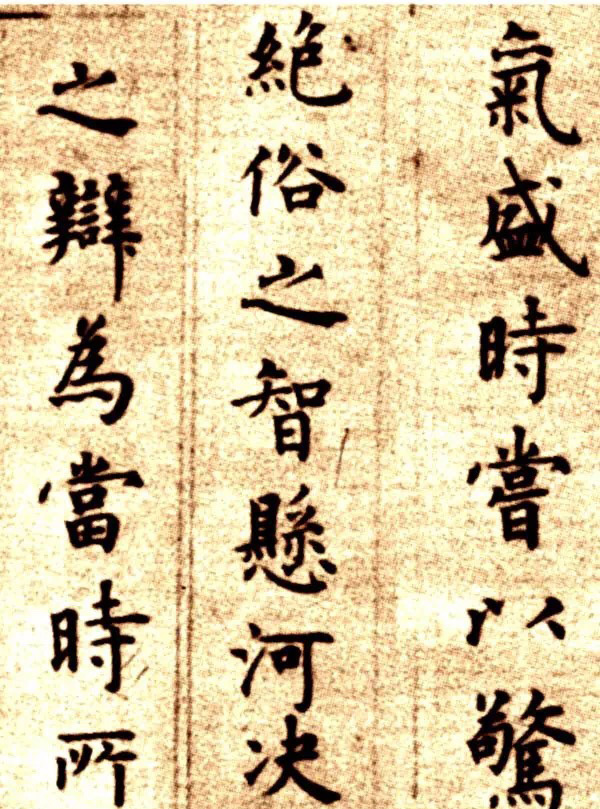 氣盛時嘗以驚
絕俗之智懸河决
之辯為當時所